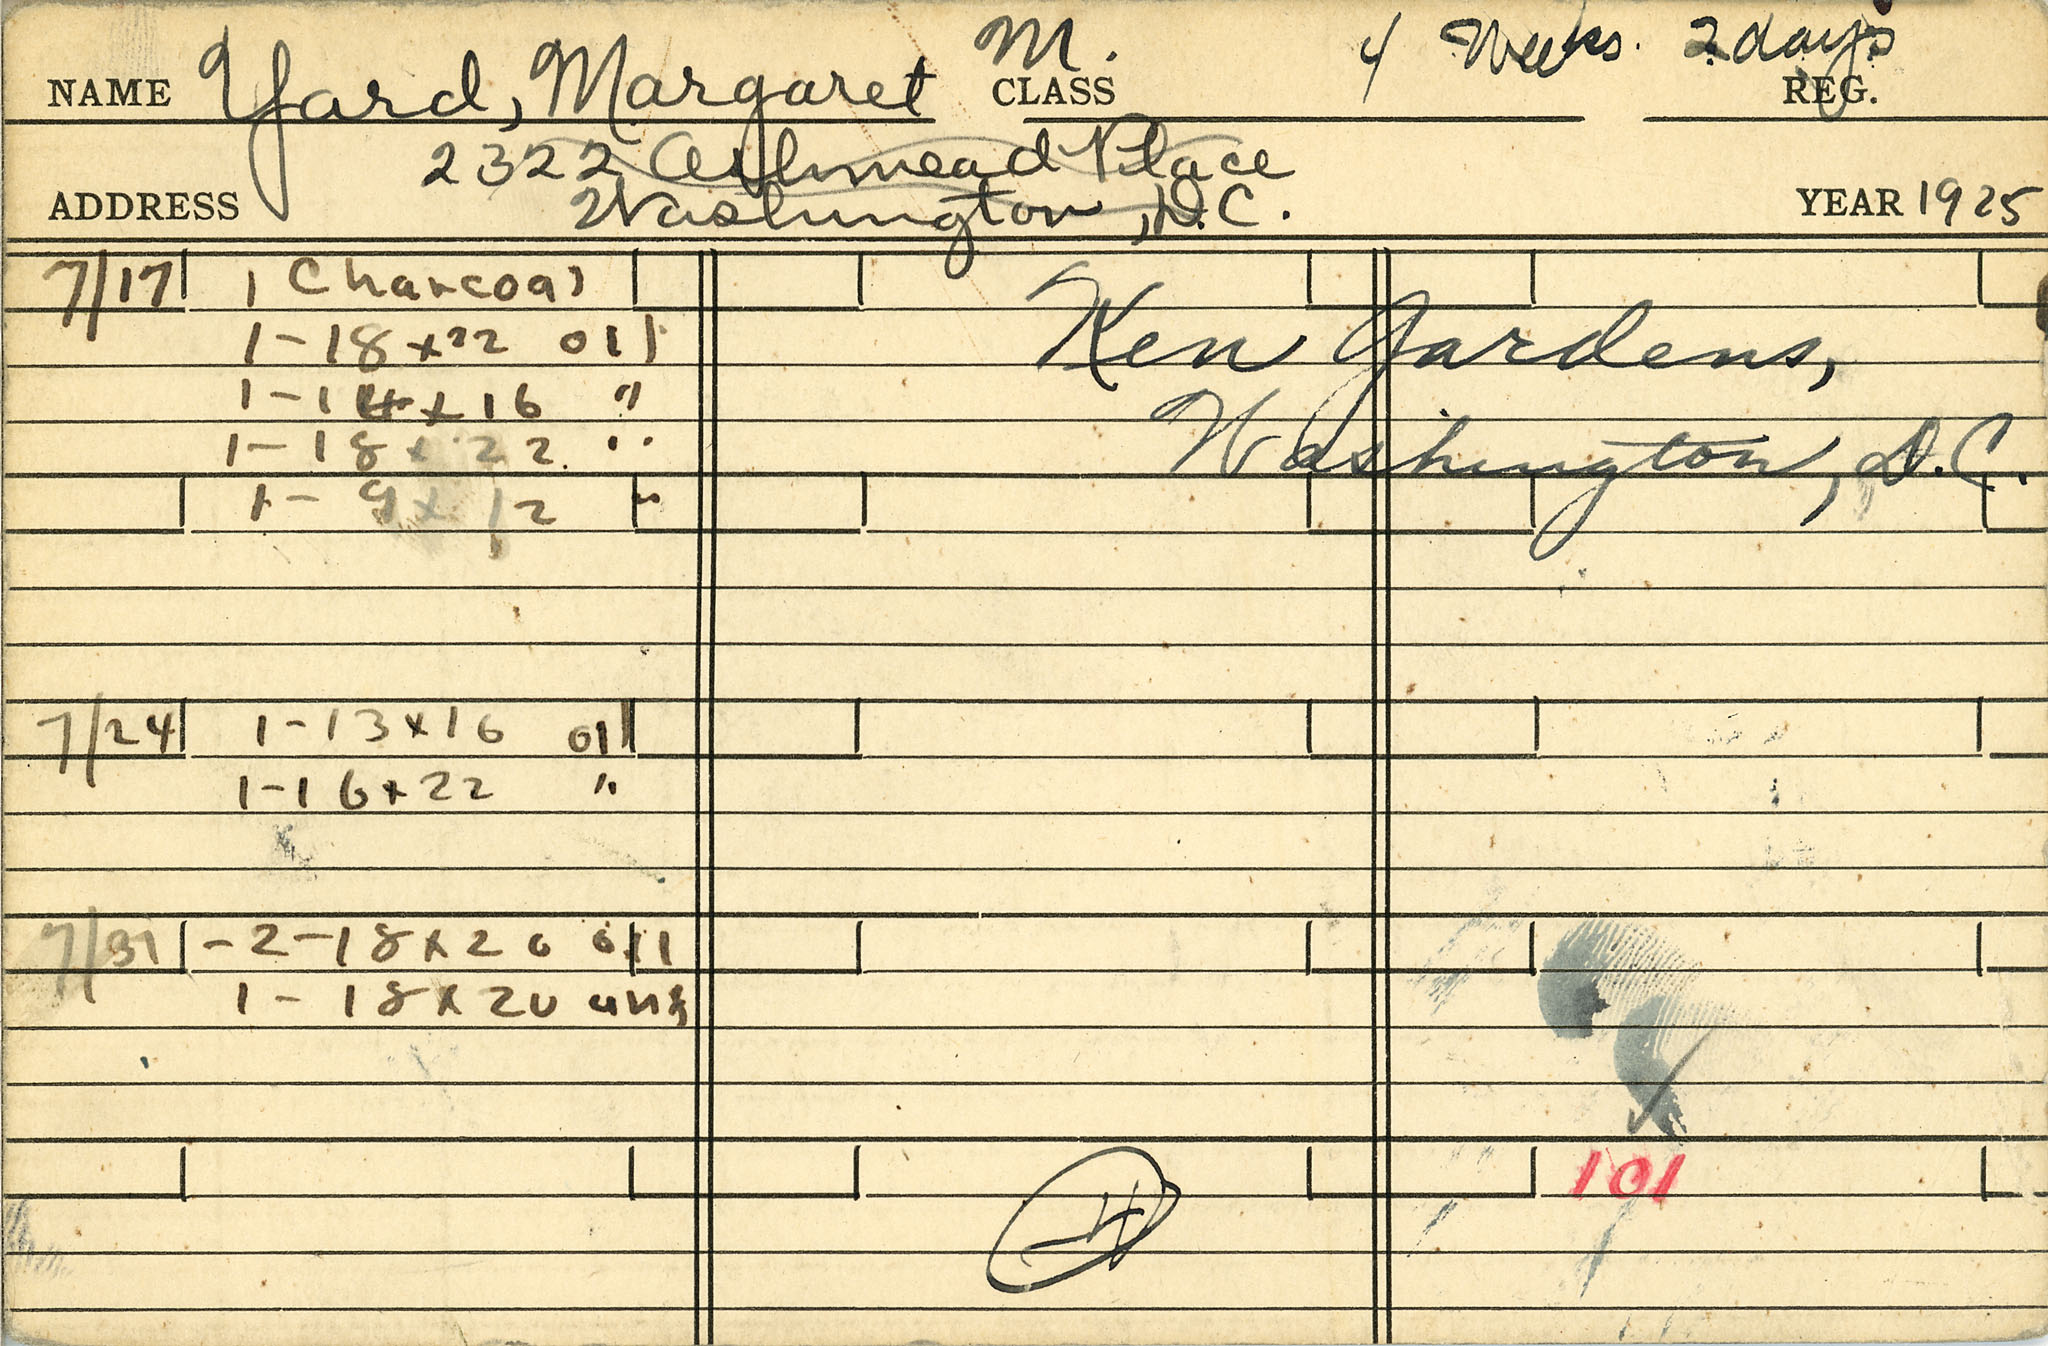 NAME Yard, Margaret M. CLASS 4 Weeks. 2 days REG.
2322 Ashmead Place
ADDRESS Washington, D.C. YEAR 1925
7/17 1 Charcoal
1-18x22 oil
1-14x16 "
1-18x22 "
1-9x12 "
Ken Gardens,
Washington, D.C.
7/24 1-13x16 oil
1-16x22 "
7/31 -2-18x20 oil
1-18x20
101